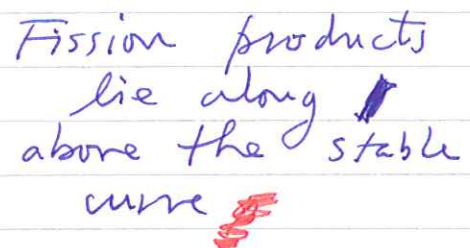 Fission products
lie along
above the stable
curve